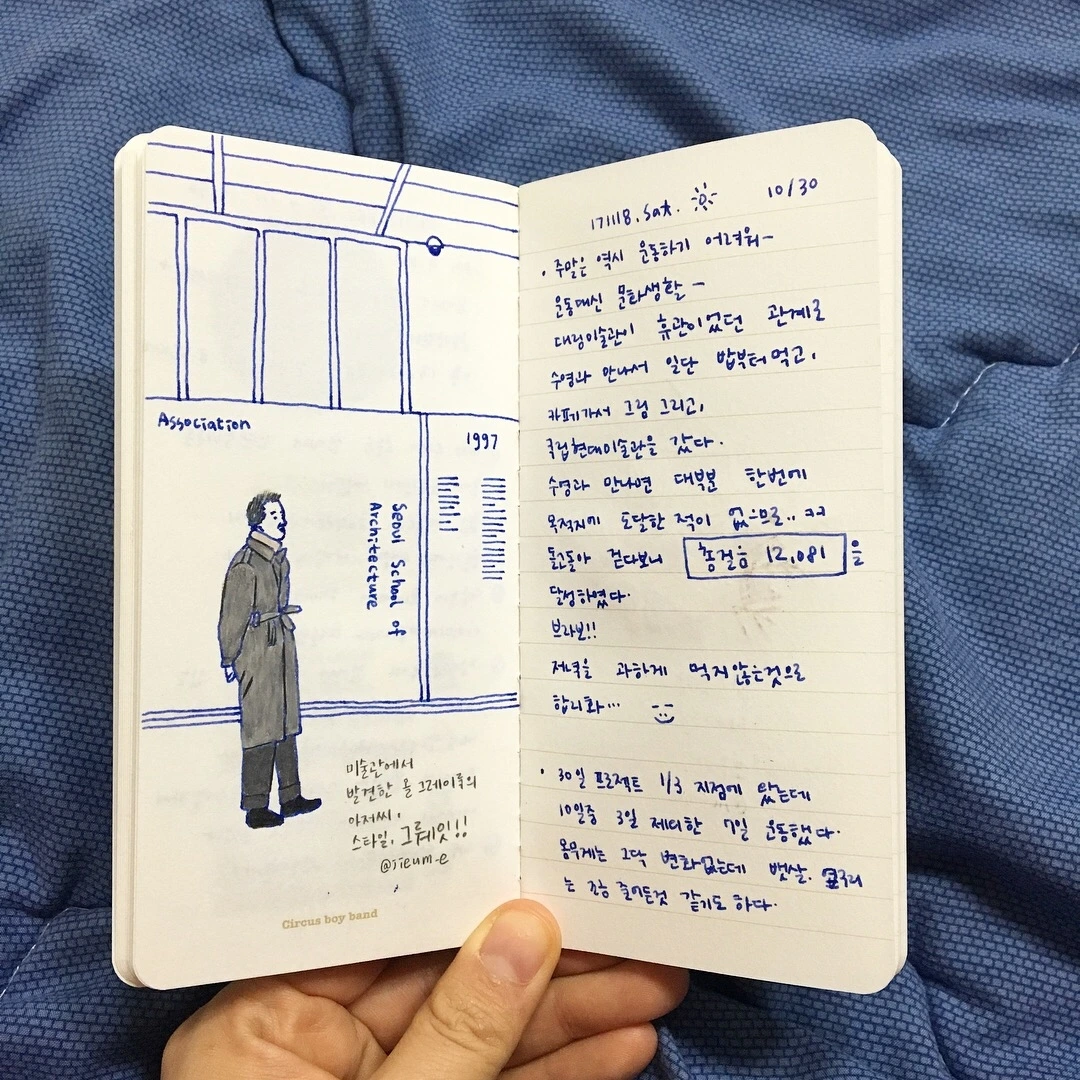 Association
1997
Seoul School of
Architecture
미술관에서
발견한 올 그레이룩의
아저씨.
스타일. 그뤠잇!!
@jieum-e
Circus boy band
171118. Sat. 10/30
· 주말은 역시 운동하기 어려워~
운동대신 문화생활~
대림미술관이 휴관이었던 관계로
수영과 만나서 일단 밥부터 먹고,
카페가서 그림 그리고,
국립현대미술관을 갔다.
수영과 만나면 대부분 한번에
목적지에 도달한 적이 없으므로..ㅋㅋ
돌고돌아 걷다보니 총걸음 12,081 을
달성하였다.
브라보!!
저녁을 과하게 먹지않는것으로
합리화...
· 30일 프로젝트 1/3 지점에 왔는데
10일중 3일 제외한 7일 운동했다.
몸무게는 그닥 변화없는데 뱃살, 옆구리
는 조금 줄어든것 같기도 하다.